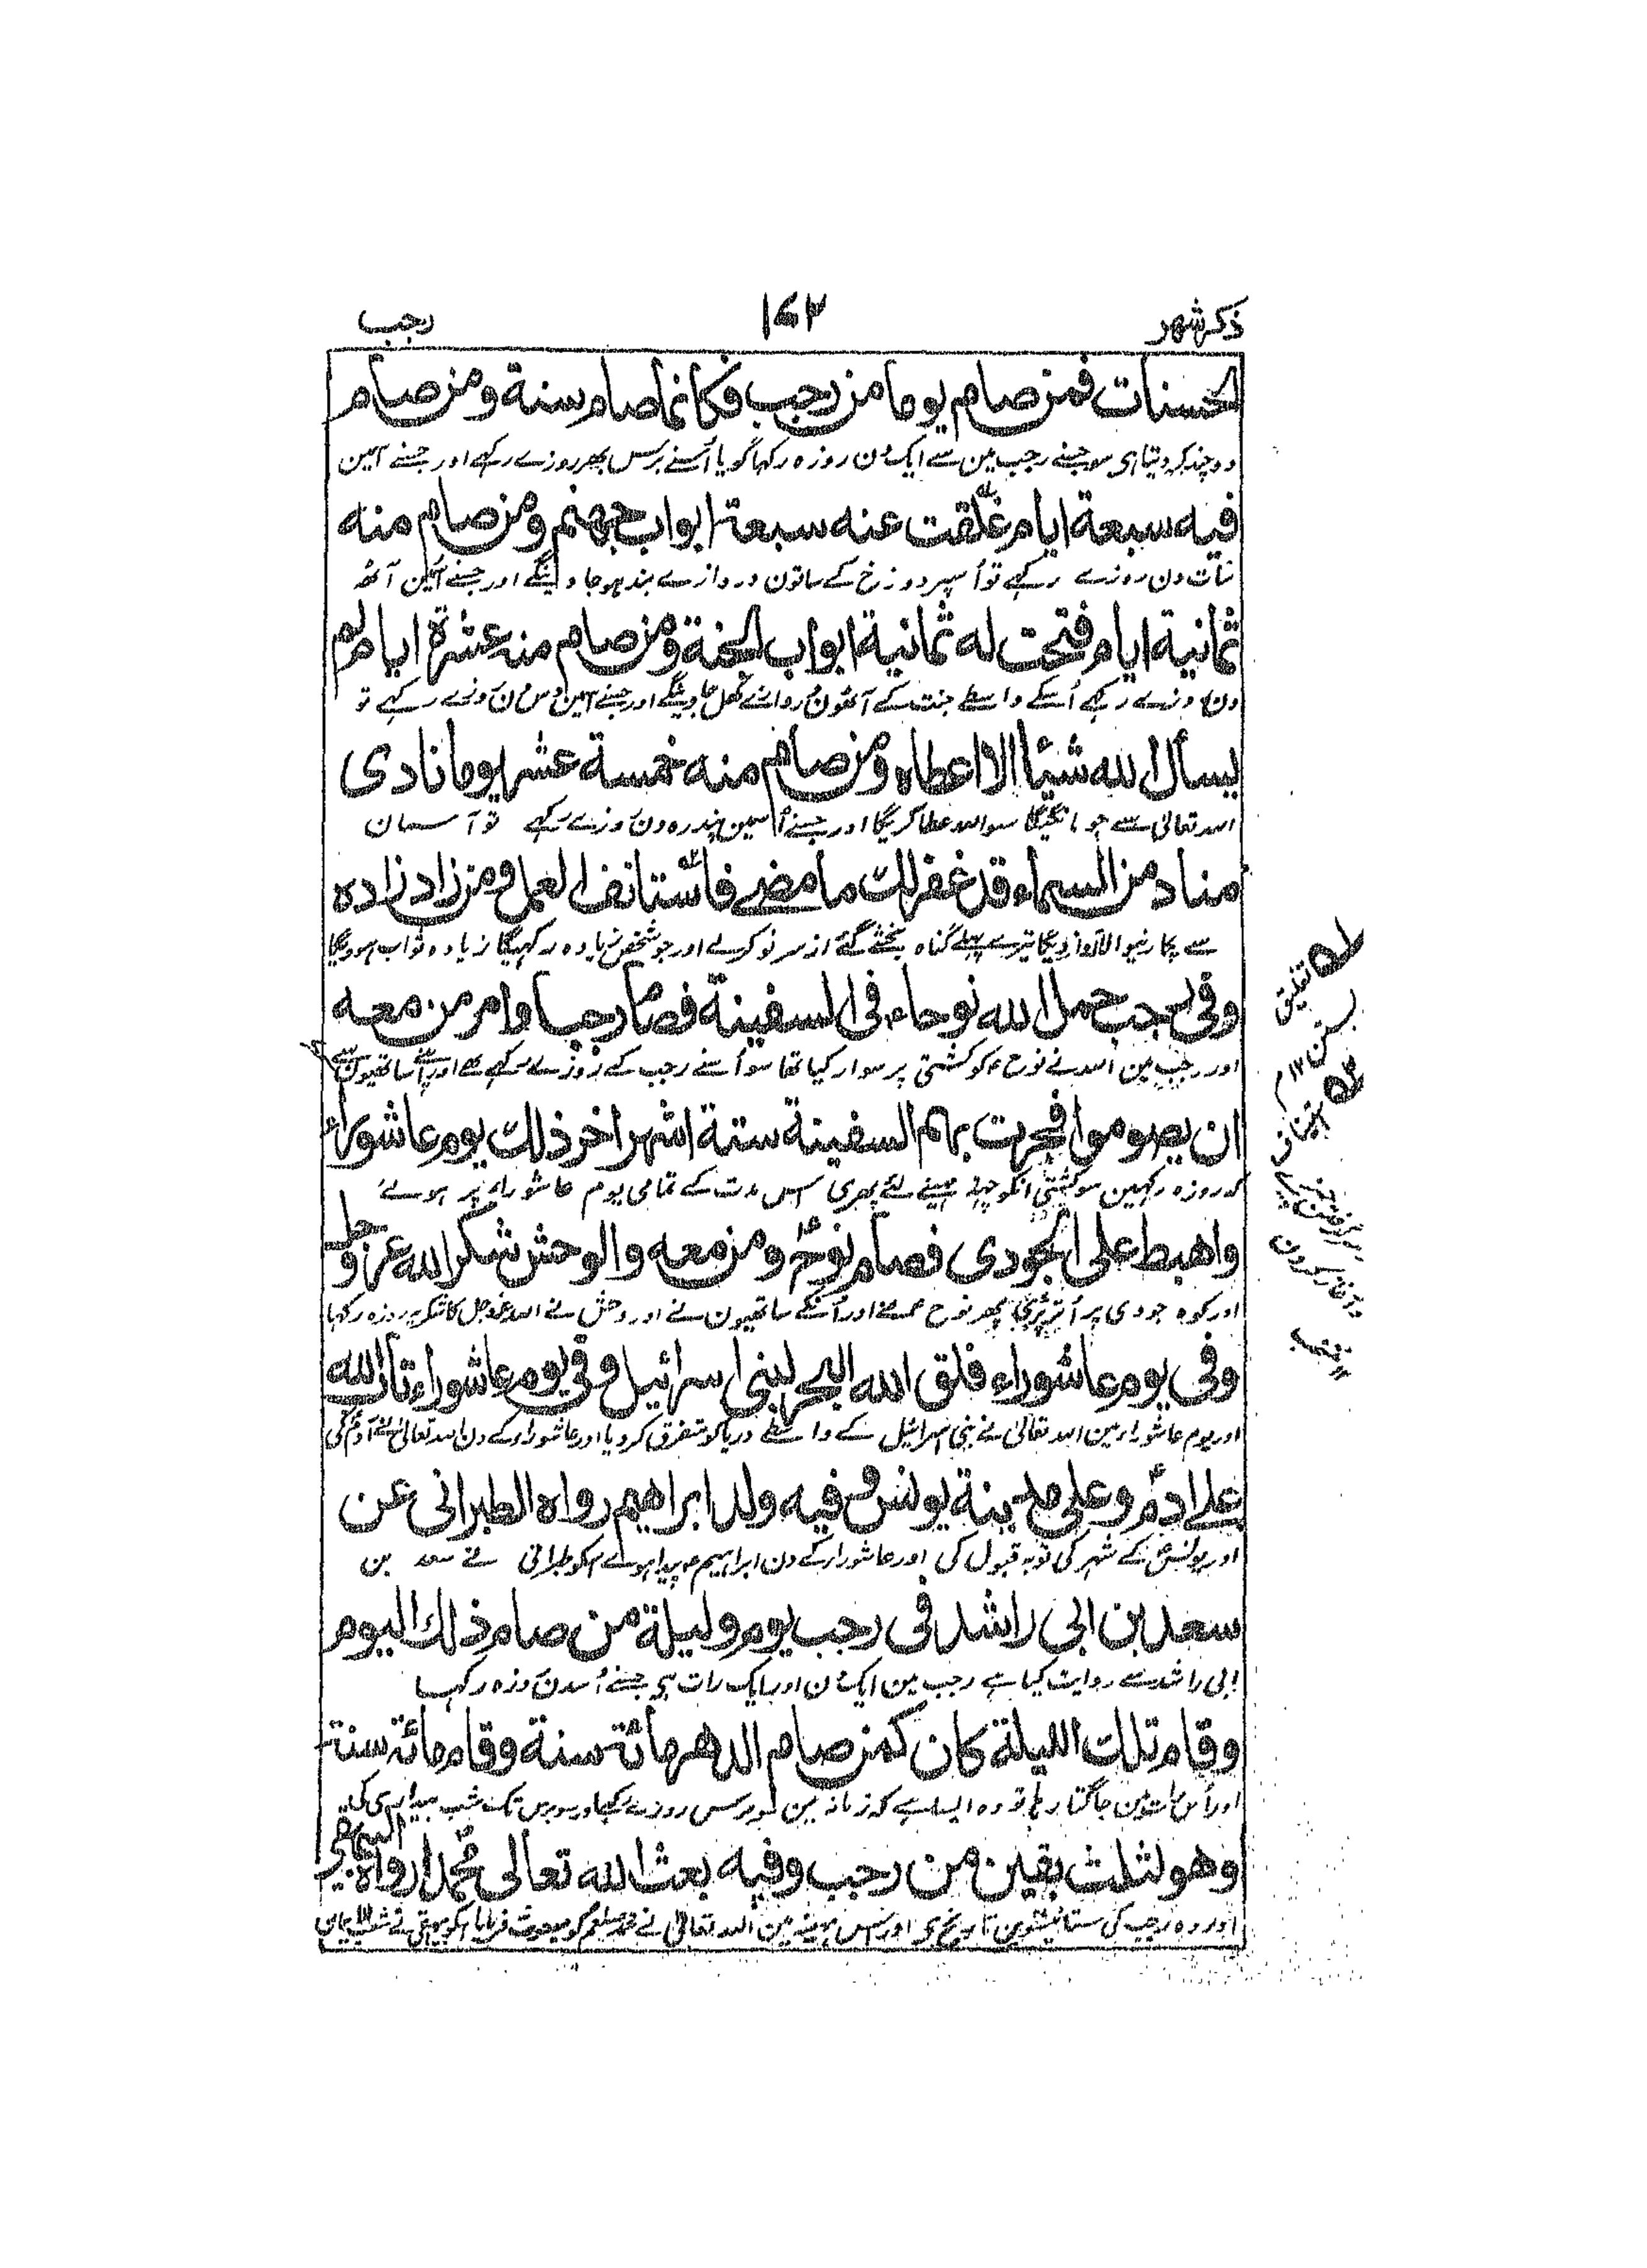 ذکر شهر ۱۷۲ رجب
الحسنات فمن صام يوما من رجب فكانما صام سنة ومن صام
دوچند کر دیتا ہی سو جسنے رجب مین سے ایک دن روزہ رکھا گویا اُسنے برس بھر روزے رکہے اور جسنے اسمین
فيه سبعة ايام غلقت عنه سبعة ابواب جهنم ومن صام منه
سات دن روزے رکہے تو اُسپر دوزخ کے ساتون دروازے بند ہو جاوینگے اور جسنے اسمین آٹھ
ثمانية ايام فتحت له ثمانية ابواب الجنة ومن صام منه عشرة ايام لم
دن روزے رکہے اُسکے واسطے جنت کے آٹھون دروازے کھل جاوینگے اور جسنے اسمین دس دن روزے رکہے تو
يسأل الله شيئا الا اعطاه ومن صام منه خمسة عشر يوما نادى
اللہ تعالیٰ سے جو مانگیگا سو اللہ عطا کریگا اور جسنے اُسمین پندرہ دن روزے رکہے تو آسمان
مناد من السماء قد غفر لك ما مضے فاستانف العمل ومن زاد زاده
سے پکارنیوالا آواز دیگا تیرے پہلے گناہ بخشے گئے از سر نو کر لے اور جو شخص زیادہ رکہیگا زیادہ ثواب ہوویگا
وفى رجب حمل الله نوحاء فى السفينة فصام رجبا وامر من معه
اور رجب مین اللہ نے نوح ء کو کشتی پر سوار کیا تھا سو اُسنے رجب کے روزے رکہے اور اپنے ساتھیون سے
ان يصوموا فجرت بهم السفينة ستة اشهر اخر ذلك يوم عاشوراء
کہ روزہ رکہین سو کشتی انکو چھہ مہینے لئے پھری اس مدت کے تمامی یوم عاشوراء پر ہوئے
واهبط على الجودى فصام نوح ومن معه والوحش شكرا لله عز وجل
اور کوہ جودی پر اُتر پڑی پھر نوح ء نے اور اُنکے ساتھیون نے اور وحش نے اللہ عزوجل کا شکریہ روزہ رکہا
وفى يوم عاشوراء فلق الله البحر لبنى اسرائيل وفى يوم عاشوراء تاب الله
اور یوم عاشوراء مین اللہ تعالیٰ نے بنی اسرائیل کے واسطے دریا کو متفرق کر دیا اور عاشوراء کے دن اللہ تعالیٰ نے آدم کی
علے ادم وعلى مدينة يونس وفيه ولد ابراهيم رواه الطبرانى عن
اور یونس ء کے شہر کی توبہ قبول کی اور عاشوراء کے دن ابراہیم ء پیدا ہوے اسکو طبرانی نے سعد بن
سعد بن ابى راشد فى رجب يوم وليلة من صام ذلك اليوم
ابی راشد سے روایت کیا ہے رجب مین ایک دن اور ایک رات ہی جسنے اُسدن روزہ رکہا
وقام تلك الليلة كان كمن صام الدهر مائة سنة وقام مائة سنة
اور اُس رات مین جاگتا رہا تو وہ ایسا ہے کہ زمانہ مین سو برس روزے رکہے اور سو برس تک شب بیداری کی
وهو لثلث بقين من رجب وفيه بعث الله تعالى محمدا رواه البيهقى
اور وہ رجب کی ستائیسوین تاریخ ہی اور اس مہینے مین اللہ تعالیٰ نے محمد صلعم کو مبعوث فرمایا اسکو بیہقی نے شعب الایمان
تغلیق
بستن ۱۲ م